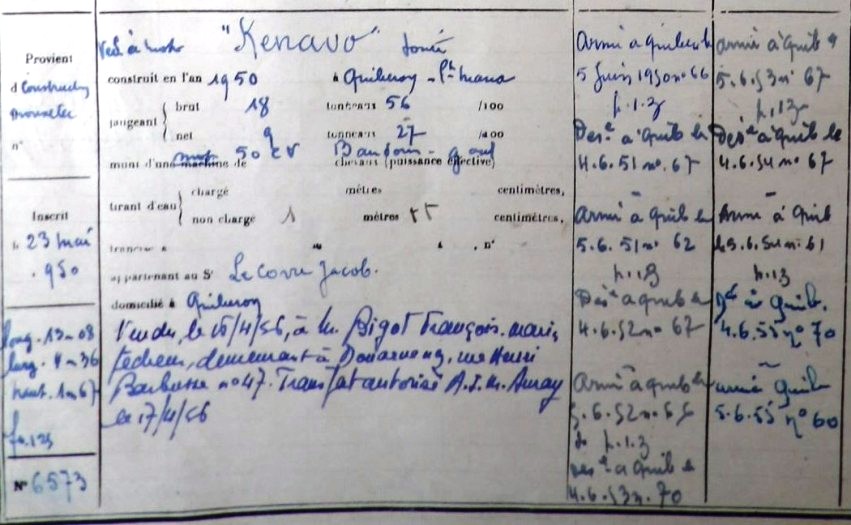 Provient
d Construction
n°
Inscrit
le 23 mai
1950
long. 13m08
larg. 4m36
haut. 1m67
fo. 125
N° 6573
"Kenavo"
construit en l'an 1950 à Quiberon - Pt maria
jaugeant { brut 18 tonneaux 56 /100
net 9 tonneaux 27 /100
mont d'une machine de 50 cv chevaux (puissance effective) Baudouin - gaul
tirant d'eau { chargé mètres centimètres,
non chargé 1 mètres 55 centimètres,
francisé à le , n°
appartenant au Sr Le Corre Jacob.
domicilié à Quiberon
Vendu, le 16/4/56, à M. Bigot François, marin
pêcheur, demeurant à Douarnenez, rue Henri
Barbusse n° 47. Transfert autorisé A.I.M. Auray
le 17/4/56
Armé à Quiberon le
5 Juin 1950 n° 66
p. 1.3
Desé à Quib le
4.6.51 n° 67
Armé à Quib le
5.6.51 n° 62
p. 13
Desé à Quib le
4.6.52 n° 67
Armé à Quib le
5.6.52 n°
p. 1.3
Desé à Quib le
4.6.53 n. 70
Armé à Quib le
5.6.53 n° 67
p. 13
Desé à Quib le
4.6.54 n° 67
Armé à Quib
le 5.6.54 n. 61
p. 13
Dé à Quib.
4.6.55 n° 70
armé Quib
5.6.55 n° 60